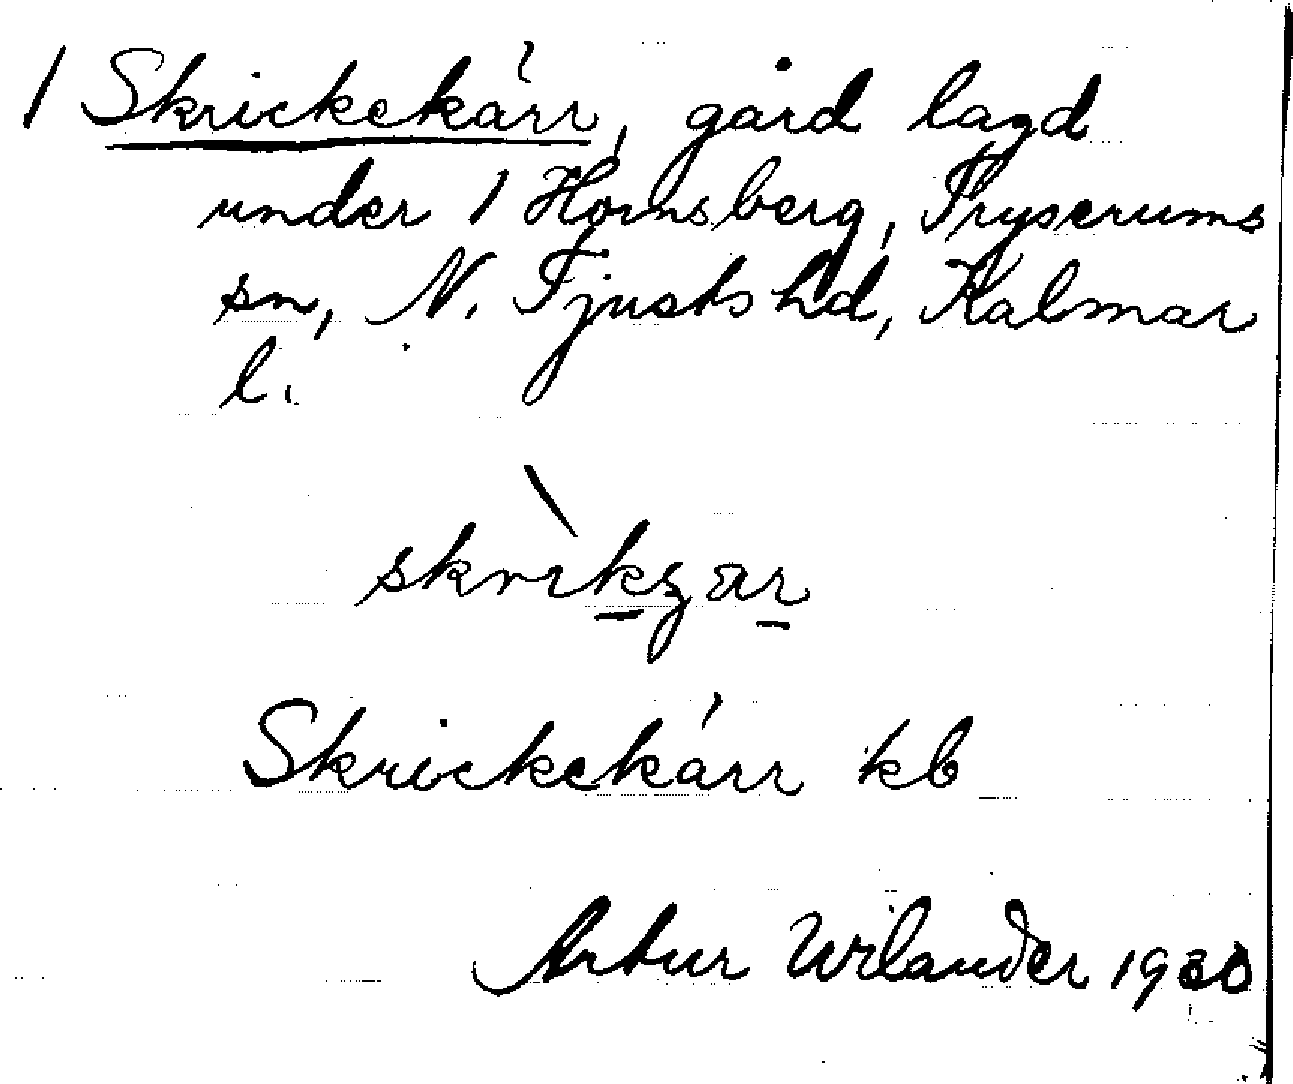 1 Skrickekärr, gård lagd
under 1 Hornsberg, Tryserums
sn, N. Tjusts hd, Kalmar
l.
Skrickekärr kb
Artur Wilander 1930